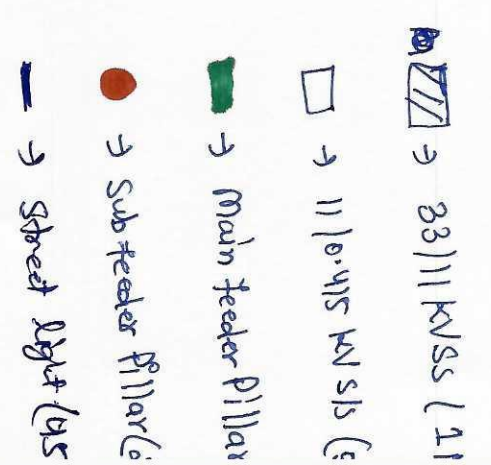 → 33/11 KVSS (11
→ 11/0.415 KV S/S (
→ Main feeder Pillar
→ Sub feeder Pillar (
→ Street light (45